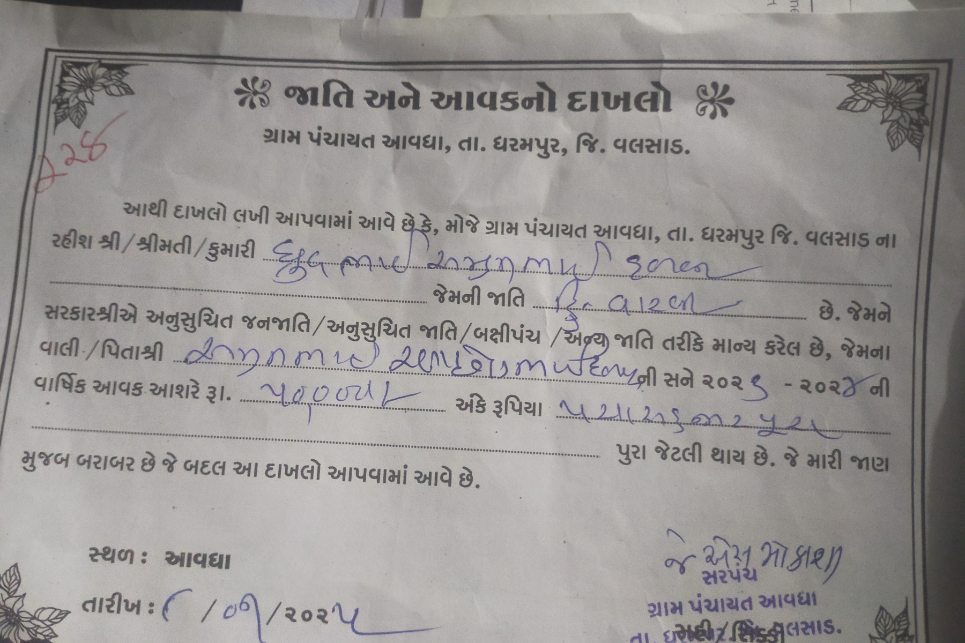 જાતિ અને આવકનો દાખલો
ગ્રામ પંચાયત આવધા, તા. ધરમપુર, જિ. વલસાડ.
228
આથી દાખલો લખી આપવામાં આવે છે કે, મોજે ગ્રામ પંચાયત આવધા, તા. ધરમપુર જિ. વલસાડ ના
રહીશ શ્રી/શ્રીમતી/કુમારી ધ્રુવભાઈ અમ્રુતભાઈ
જેમની જાતિ હિન્દુ વારલી છે. જેમને
સરકારશ્રીએ અનુસુચિત જનજાતિ/અનુસુચિત જાતિ/બક્ષીપંચ /અન્ય જાતિ તરીકે માન્ય કરેલ છે, જેમના
વાલી/પિતાશ્રી અમ્રુતભાઈ ની સને ૨૦૨ - ૨૦૨૪ ની
વાર્ષિક આવક આશરે રૂા. ૫૦,૦૦૦/- અંકે રૂપિયા પચાસ હજાર પુરા
પુરા જેટલી થાય છે. જે મારી જાણ
મુજબ બરાબર છે જે બદલ આ દાખલો આપવામાં આવે છે.
સ્થળ : આવધા
તારીખ : /૦૧/૨૦૨૫
જે એસ મોકાશી
સરપંચ
ગ્રામ પંચાયત આવધા
તા. વલસાડ.